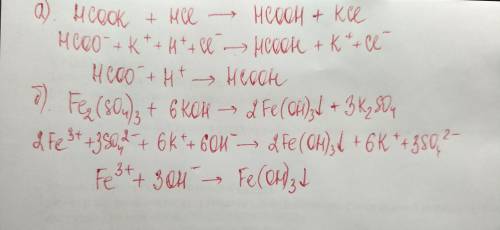 а). HCOOK + HCl → HCOOH + KCl
HCOO⁻ + K⁺ + H⁺ + Cl⁻ → HCOOH + K⁺ + Cl⁻
HCOO⁻ + H⁺ → HCOOH
б). Fe₂(SO₄)₃ + 6KOH → 2Fe(OH)₃↓ + 3K₂SO₄
2Fe³⁺ + 3SO₄²⁻ + 6K⁺ + 6OH⁻ → 2Fe(OH)₃↓ + 6K⁺ + 3SO₄²⁻
Fe³⁺ + 3OH⁻ → Fe(OH)₃↓